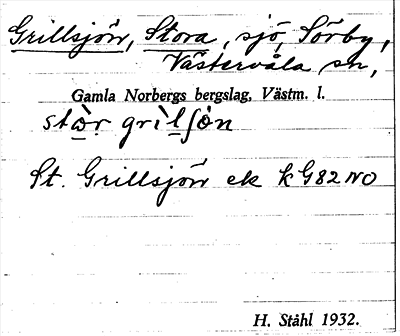 Grillsjön, Stora, sjö, Sörby,
Västervåla sn,
Gamla Norbergs bergslag, Västm. l.
stòr grìlʃòn
St. Grillsjön ek k G82 NO
H. Ståhl 1932.